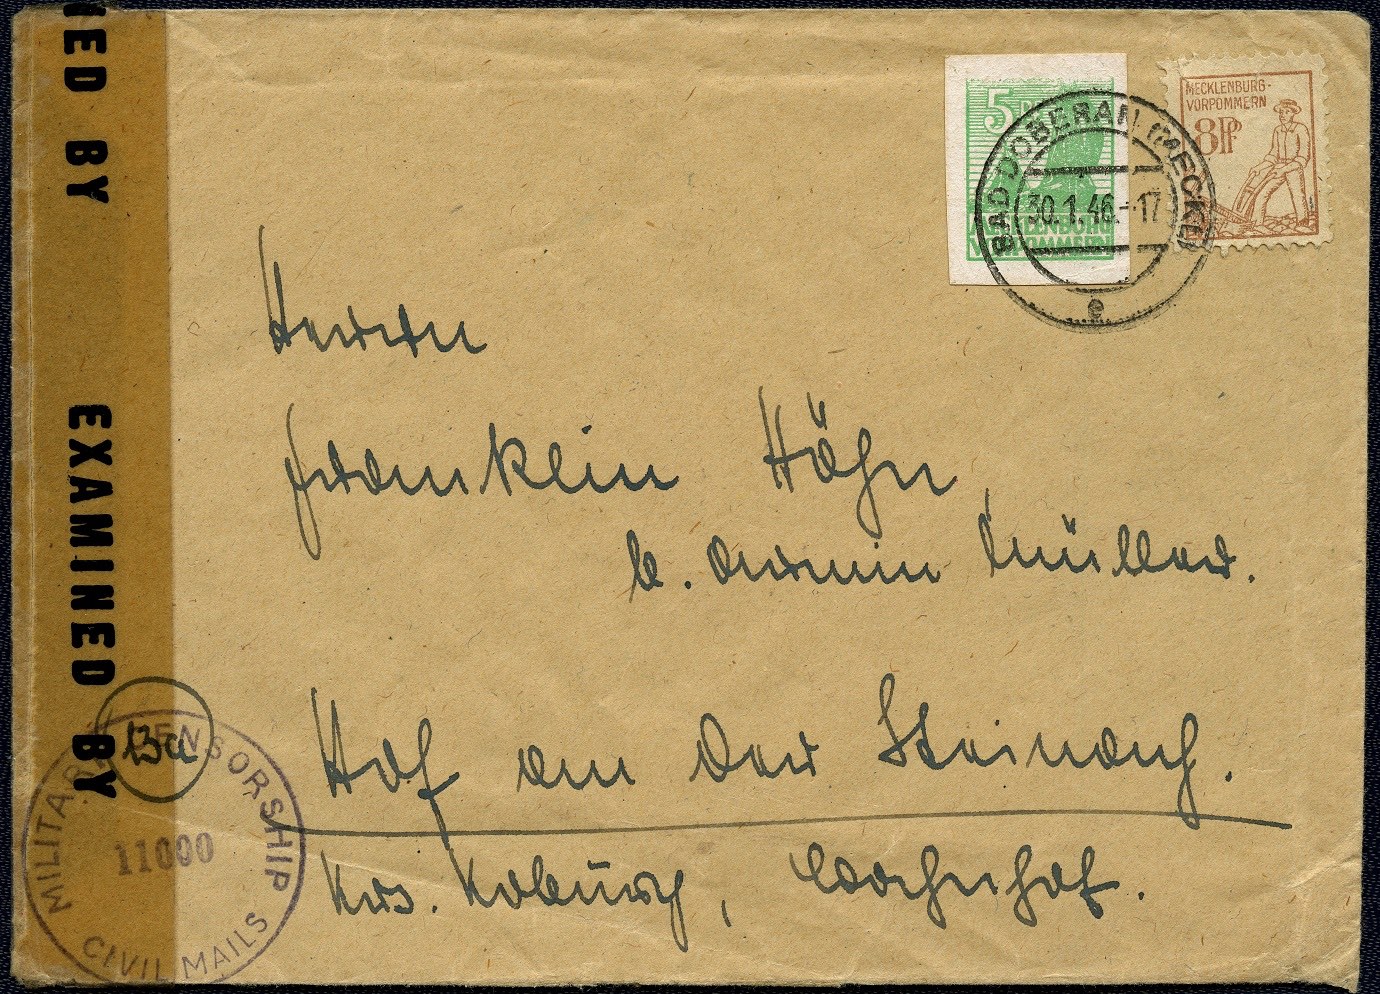 ED BY
EXAMINED BY
5
MECKLENBURG
VORPOMMERN
MECKLENBURG-
VORPOMMERN
8 Pf
BAD DOBERAN (MECKL)
30.1.46.-17
e
Herrn
Franklin Höhn
b. Armin Müller.
Hof an der Steinach.
Krs. Koburg,
MILITARY CENSORSHIP
11000
CIVIL MAILS